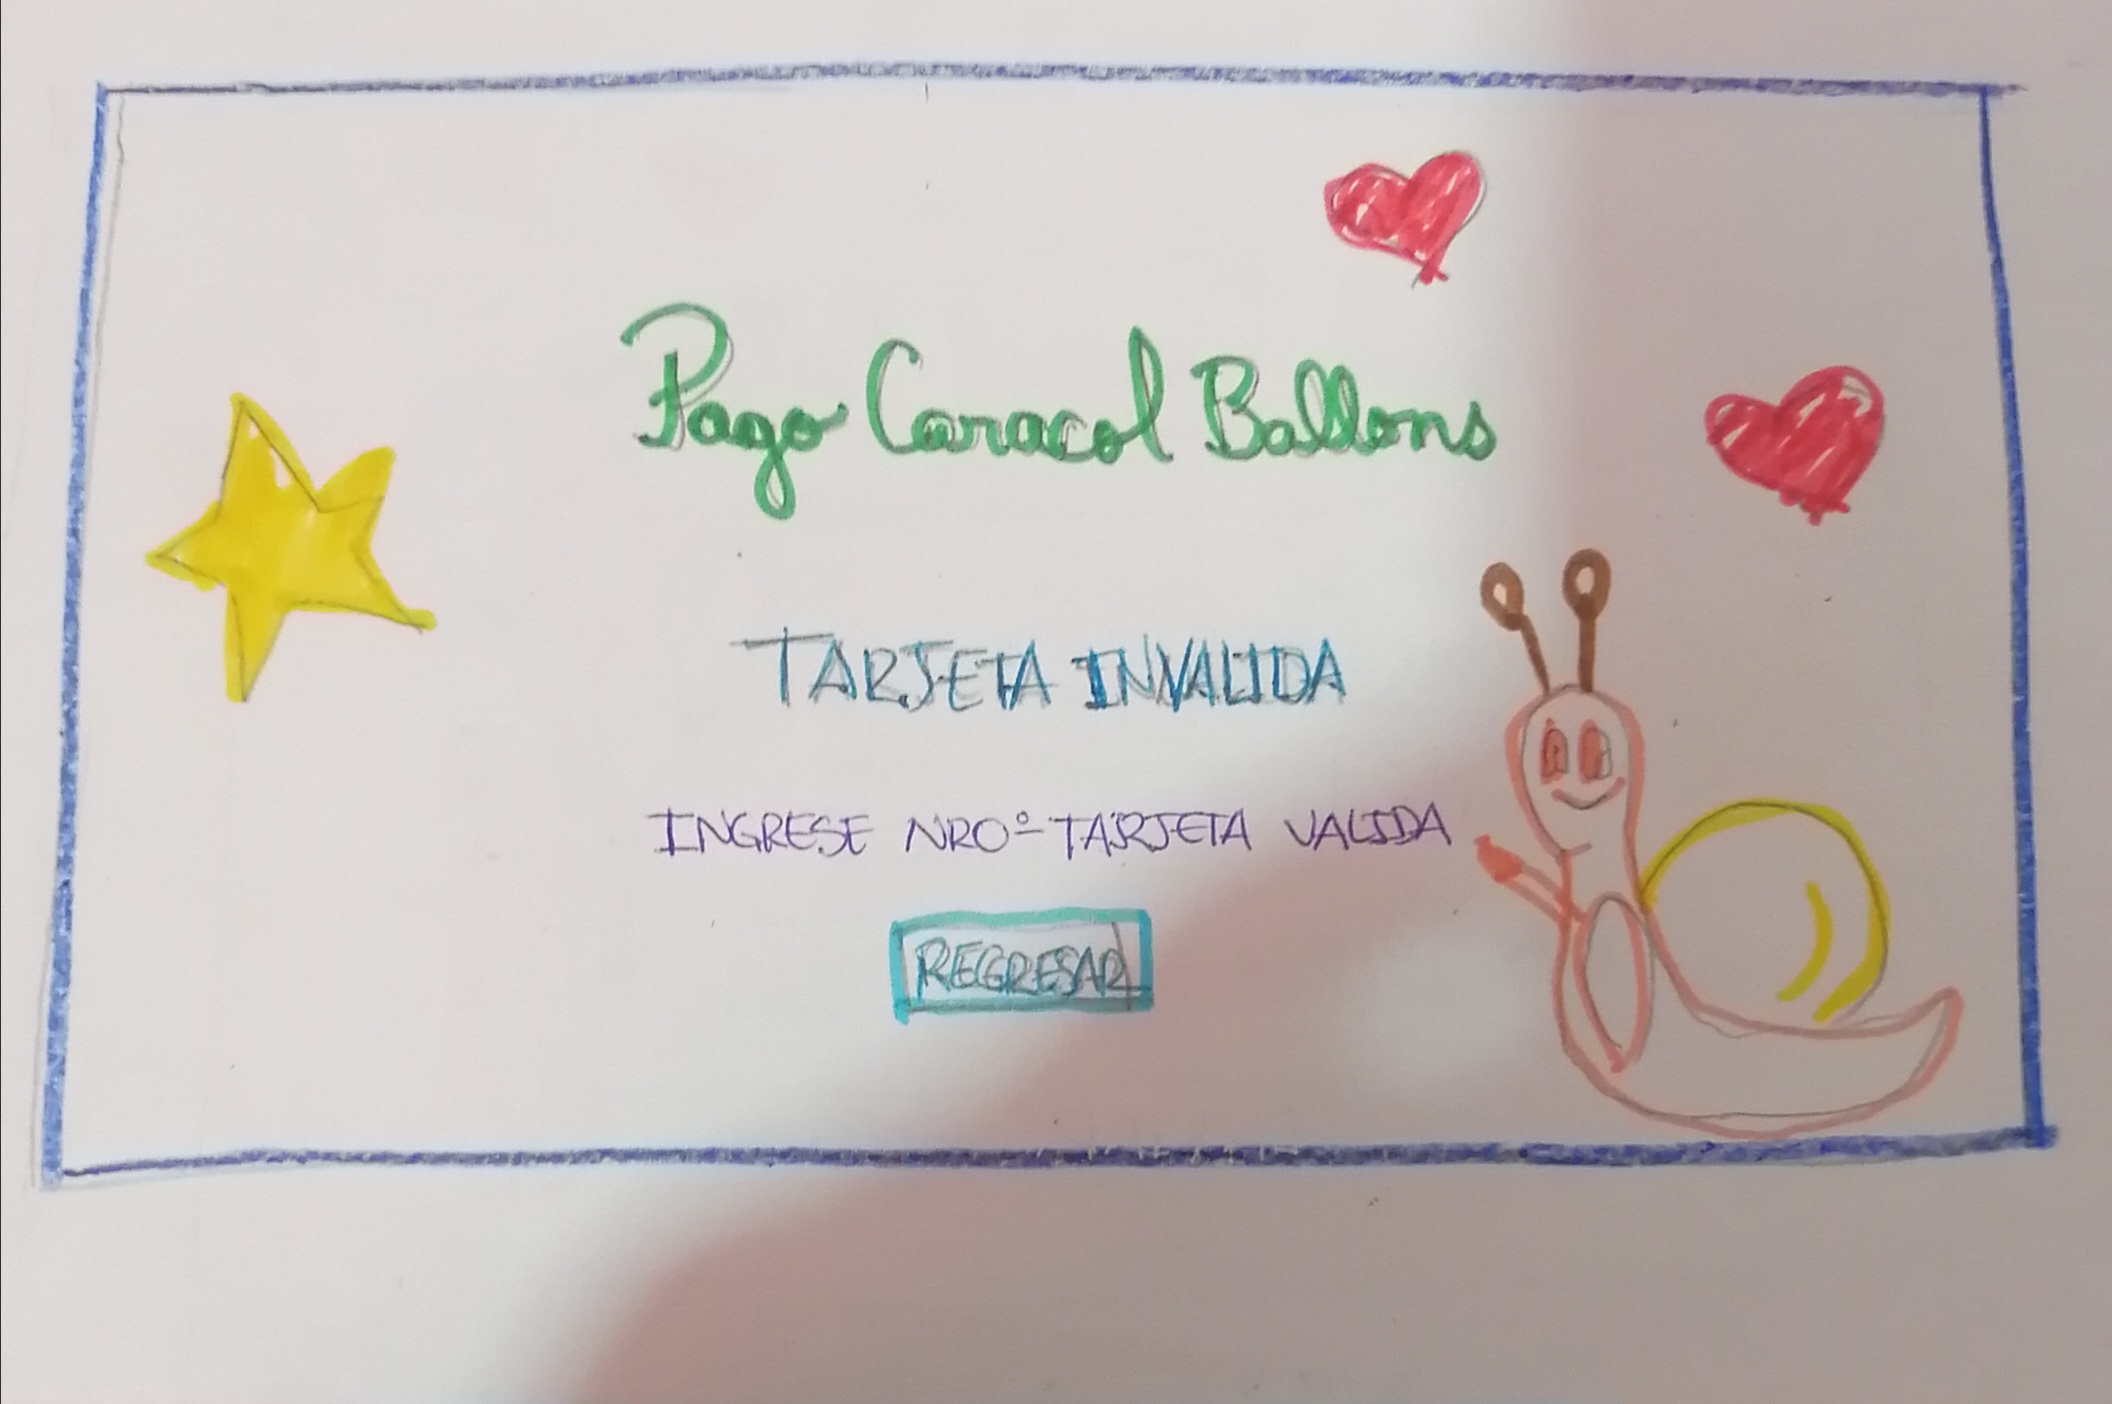 Pago Caracol Ballons
TARJETA INVALIDA
INGRESE NROº TARJETA VALIDA
REGRESAR